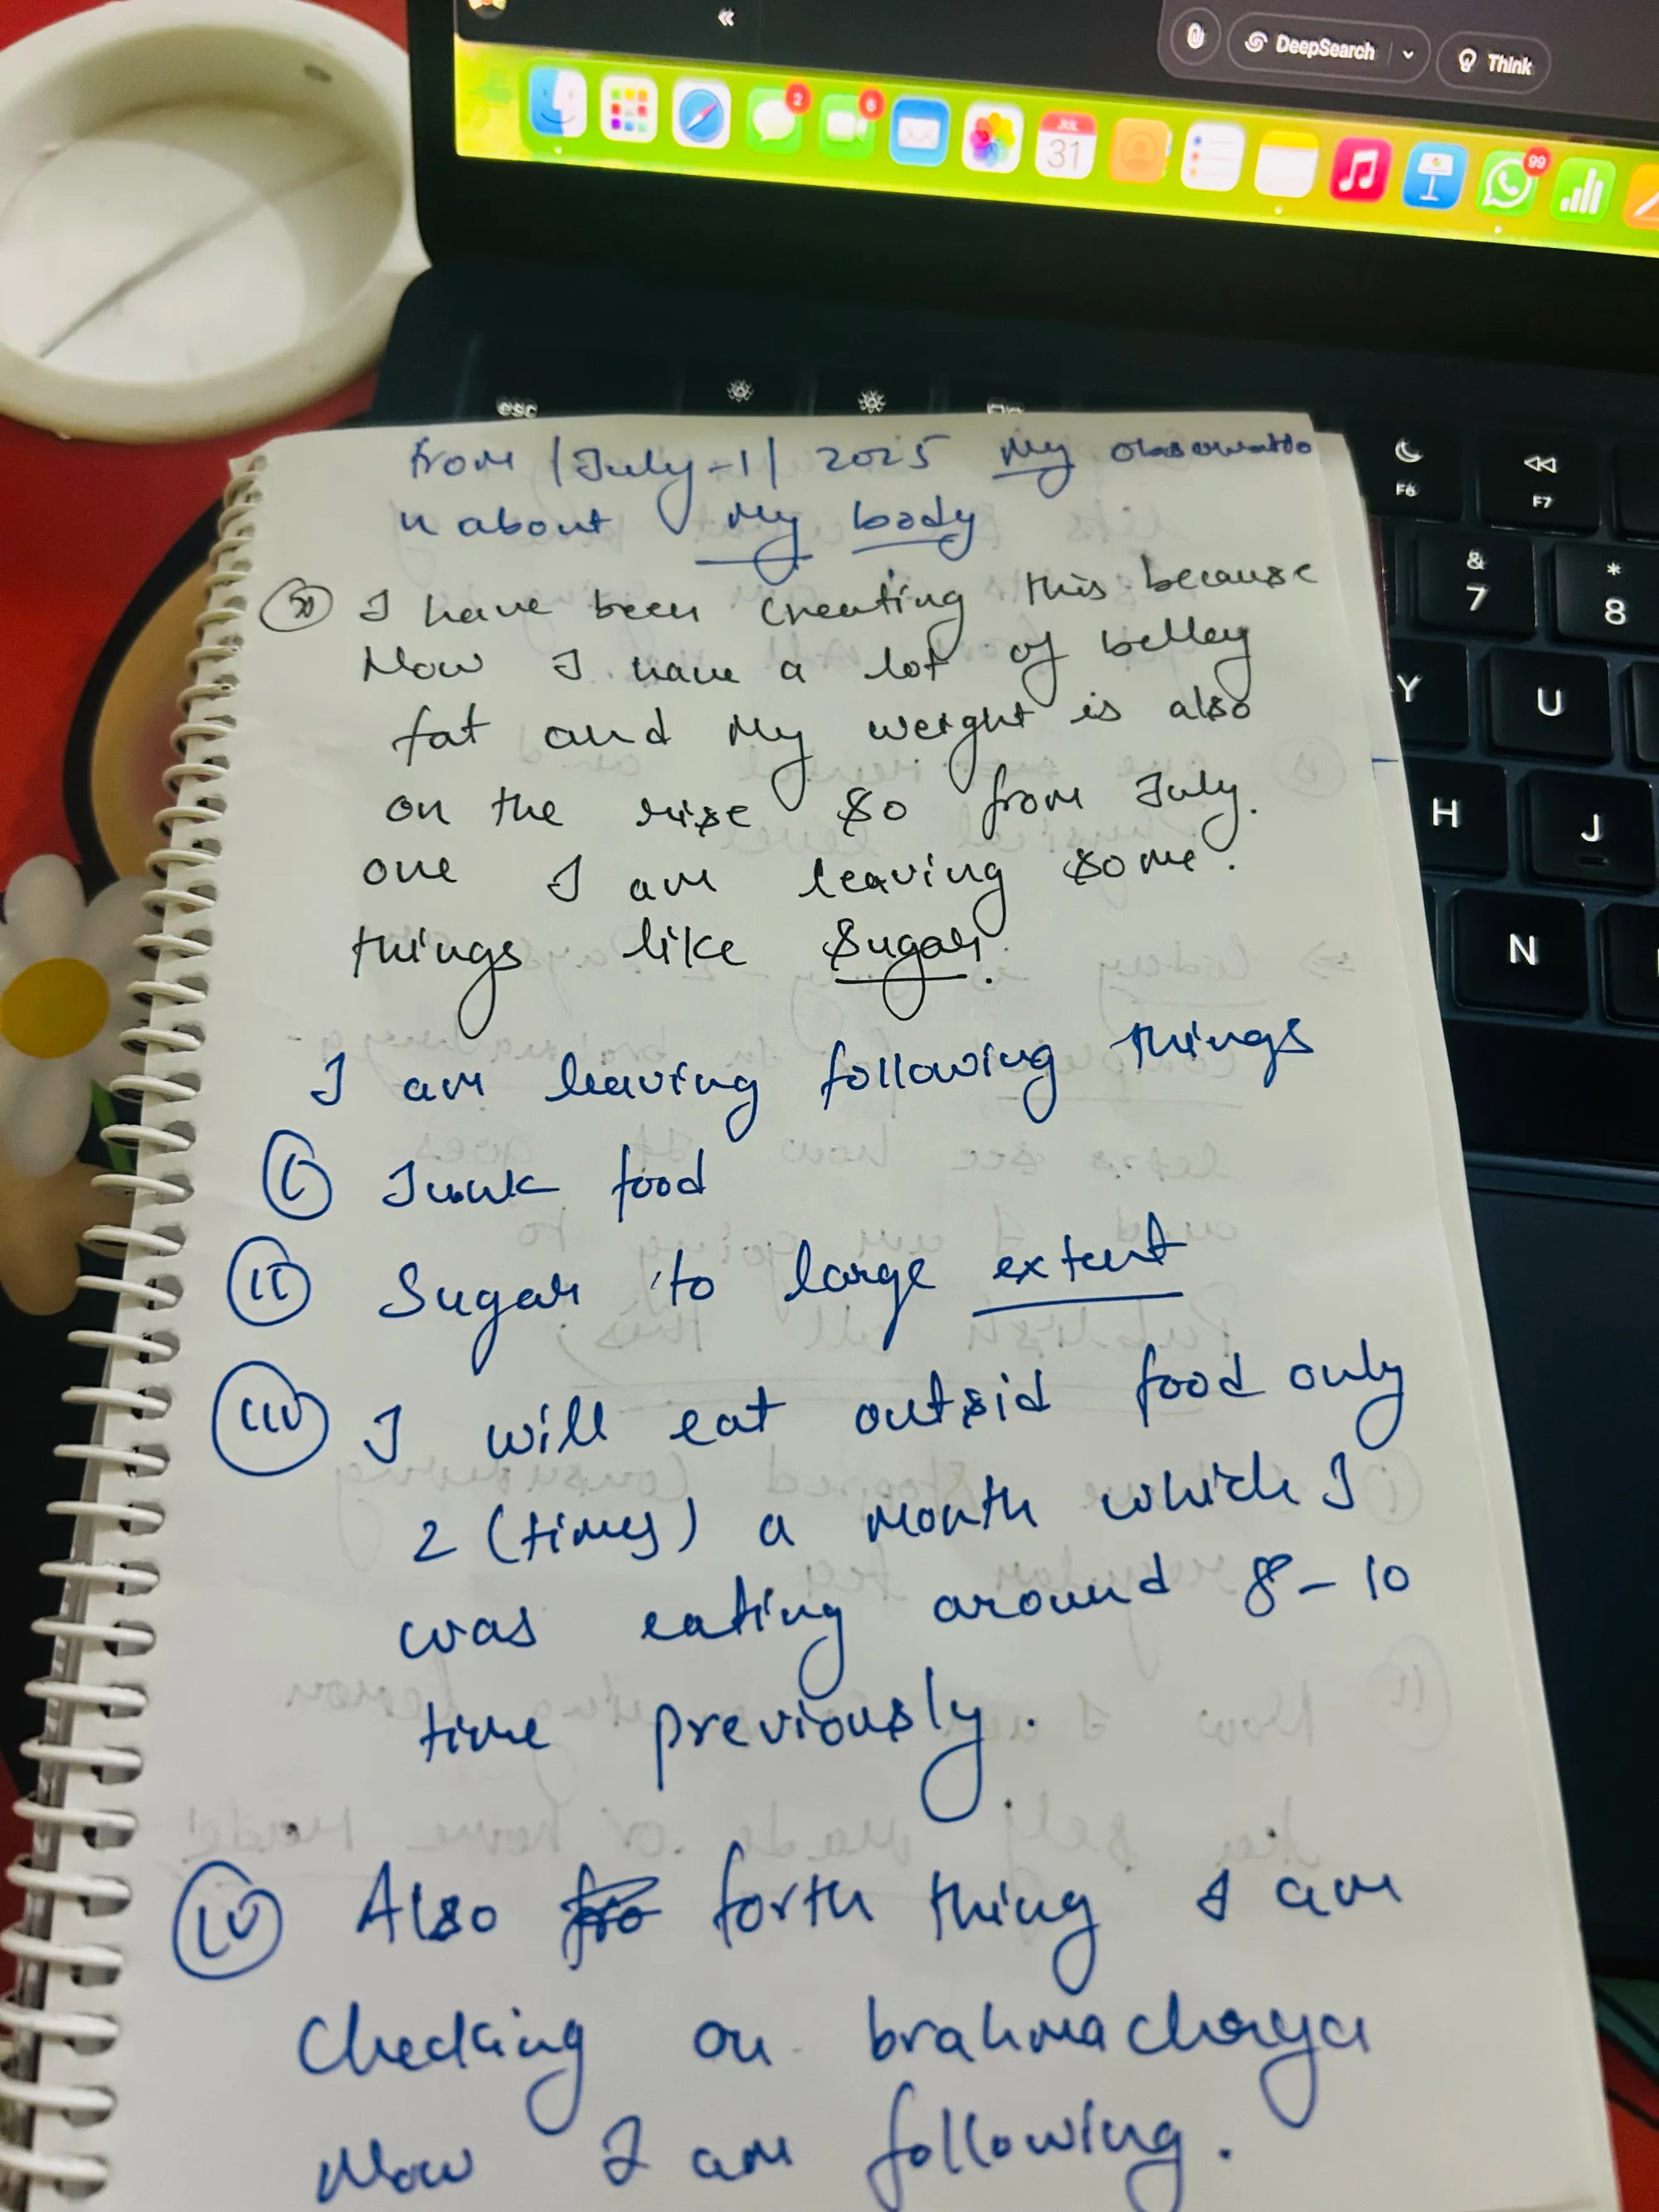 «
DeepSearch
Think
2
6
JUL
31
99
esc
F6
F7
&
7
*
8
Y
U
H
J
N
from /July-1/ 2025 My observatio
n about My body
I have been creating this because
Now I have a lot of belley
fat and My weight is also
on the rise So from July.
one I am leaving some.
things like Sugar.
I am leaving following things
(i) Junk food
(ii) Sugar to large extent
(iii) I will eat outsid food only
2 (times) a month which I
was eating around 8-10
time previously.
(iv) Also forth thing I am
checking on brahmacharya
Now I am following.